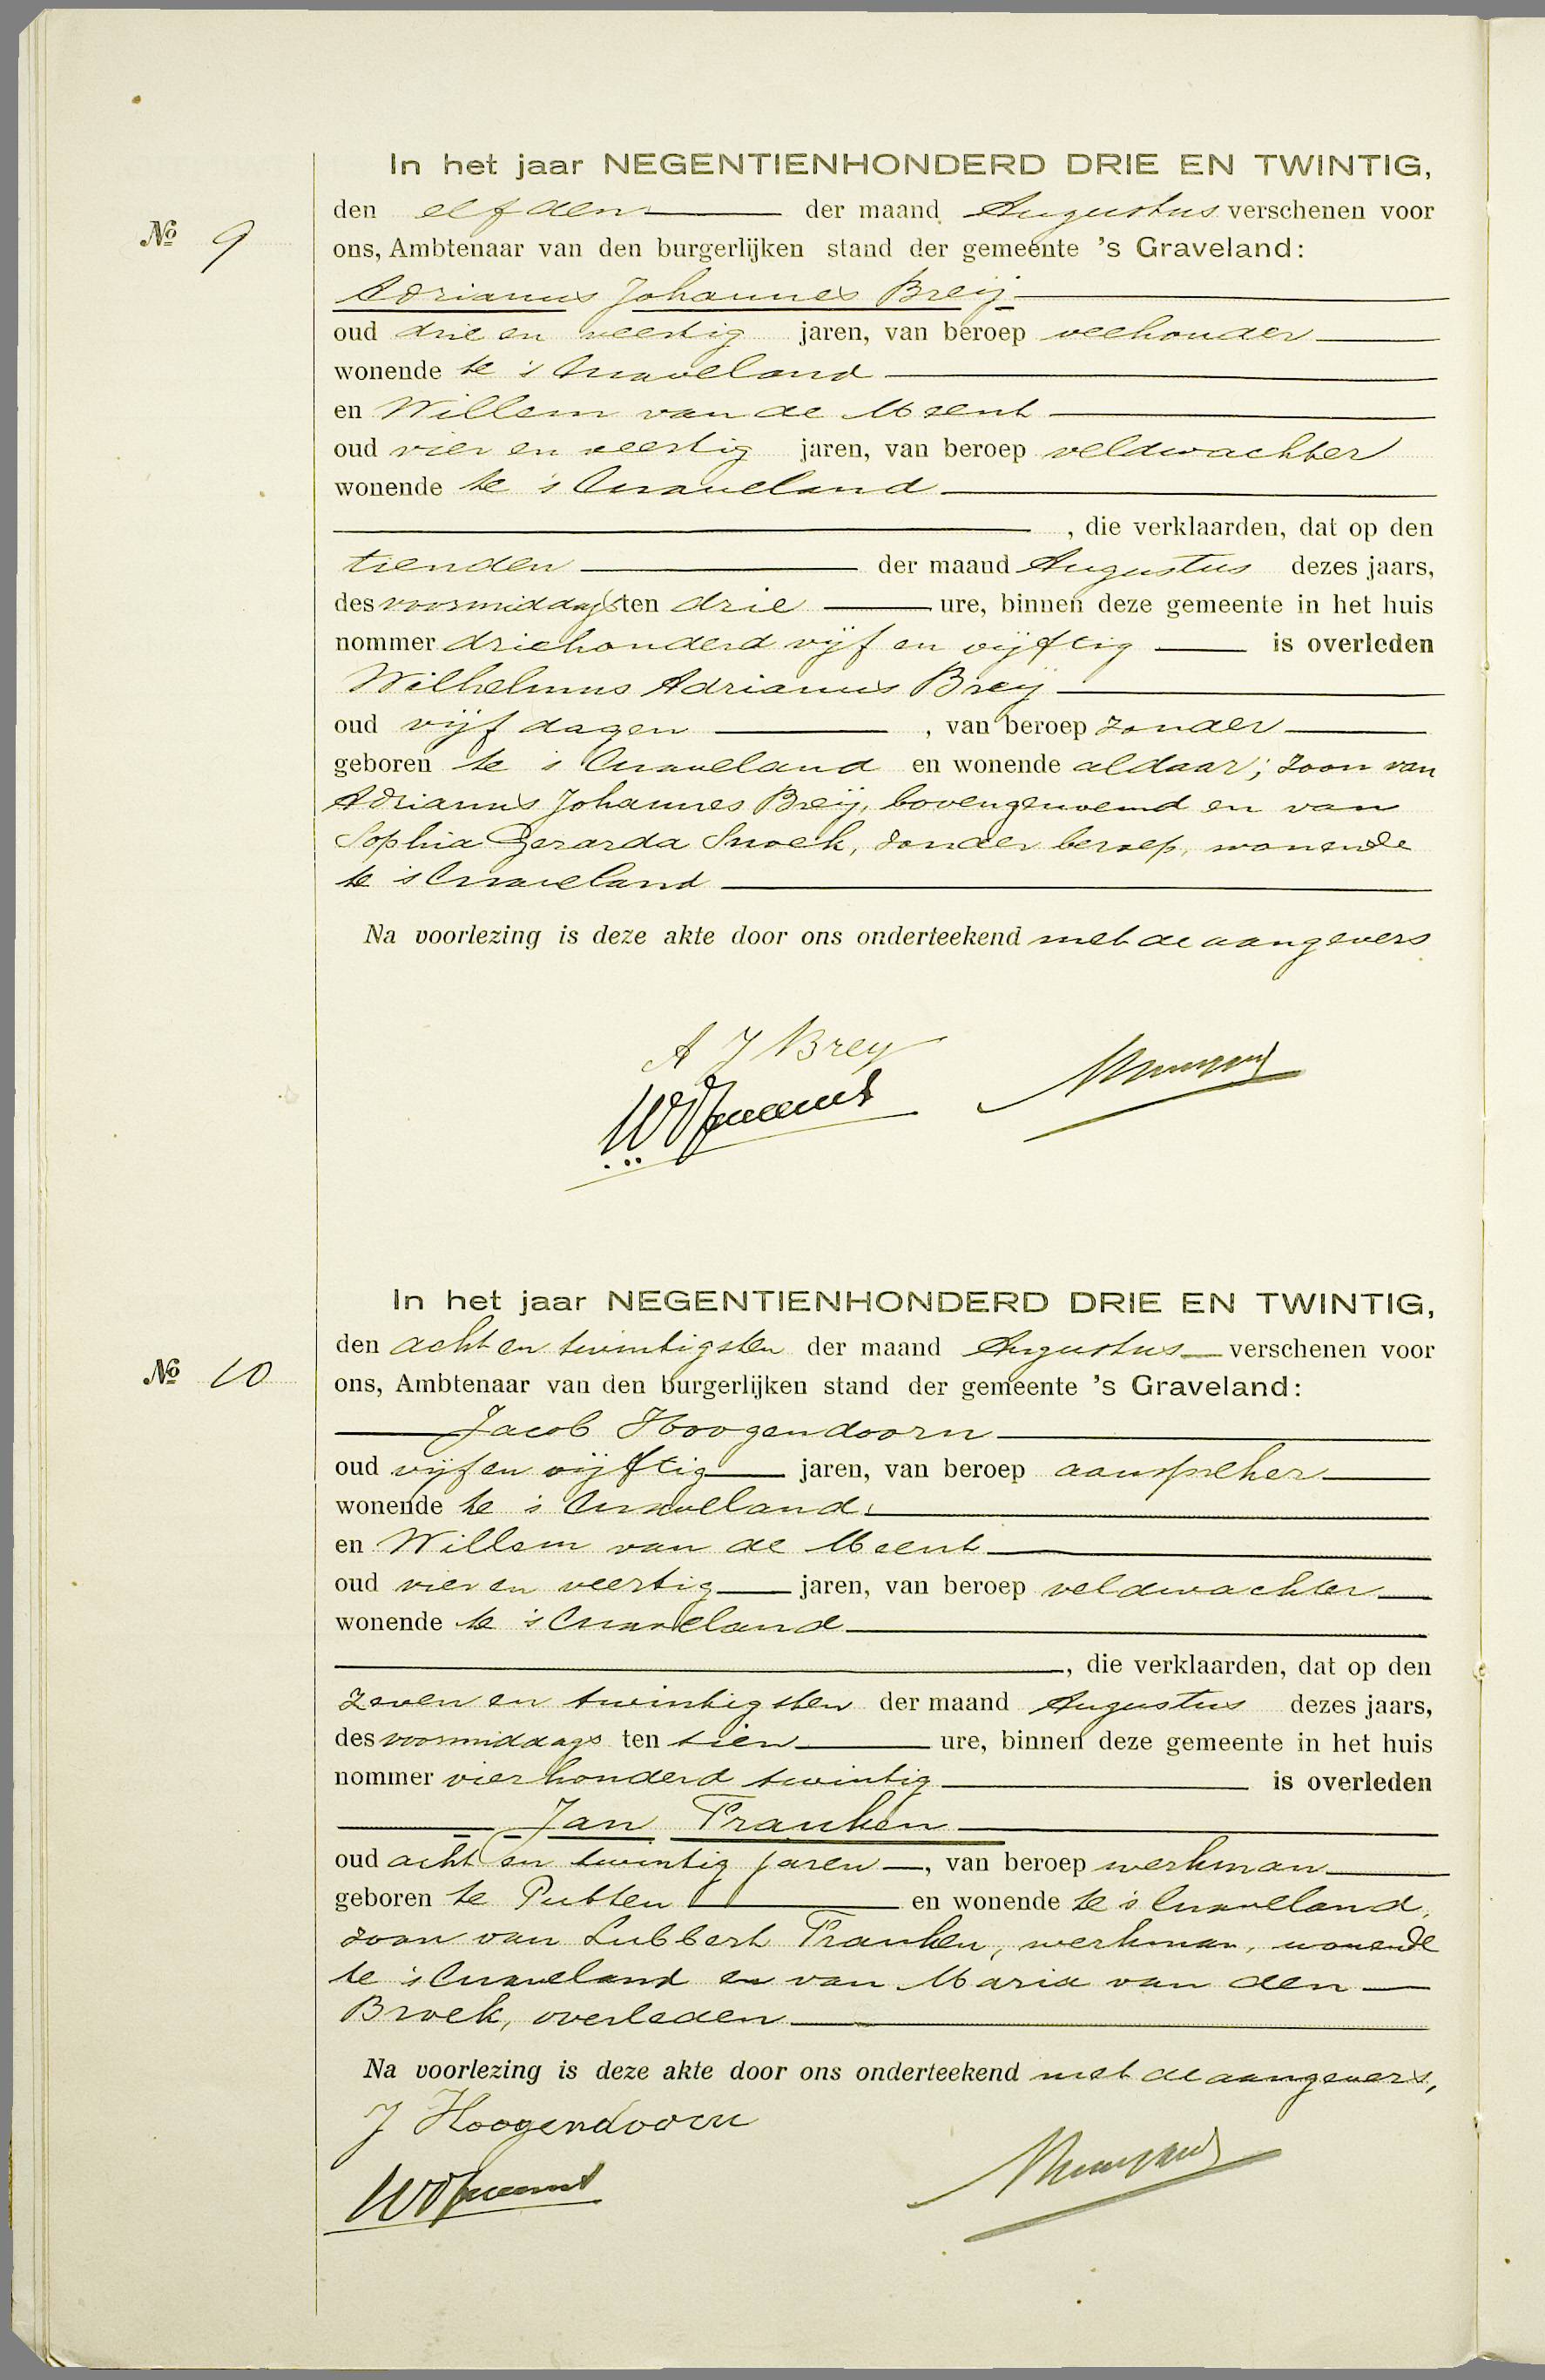 In het jaar NEGENTIENHONDERD DRIE EN TWINTIG,
den elfden der maand Augustus verschenen voor
№ 9
ons, Ambtenaar van den burgerlijken stand der gemeente 's Graveland:
Adrianus Johannes Breij
oud drie en veertig jaren, van beroep veehouder
wonende te 's Graveland
en Willem van de Meent
oud vier en veertig jaren, van beroep veldwachter
wonende te 's Graveland
, die verklaarden, dat op den
tienden der maand Augustus dezes jaars,
des voormiddags ten drie ure, binnen deze gemeente in het huis
nommer driehonderd vijf en vijftig is overleden
Wilhelmus Adrianus Breij
oud vijf dagen, van beroep zonder
geboren te 's Graveland en wonende aldaar; zoon van
Adrianus Johannes Breij, bovengenoemd en van
Sophia Gerarda Snoek, zonder beroep, wonende
te 's Graveland
Na voorlezing is deze akte door ons onderteekend met de aangevers
A J Brey
In het jaar NEGENTIENHONDERD DRIE EN TWINTIG,
den acht en twintigsten der maand Augustus verschenen voor
№ 10
ons, Ambtenaar van den burgerlijken stand der gemeente 's Graveland:
Jacob Hoogendoorn
oud vijf en vijftig jaren, van beroep aanspreker
wonende te 's Graveland
en Willem van de Meent
oud vier en veertig jaren, van beroep veldwachter
wonende te 's Graveland
, die verklaarden, dat op den
zeven en twintigsten der maand Augustus dezes jaars,
des voormiddags ten tien ure, binnen deze gemeente in het huis
nommer vierhonderd twintig is overleden
Jan Franken
oud acht en twintig jaren, van beroep werkman
geboren te Putten en wonende te 's Graveland,
zoon van Lubbert Franken, werkman, wonende
te 's Graveland en van Maria van den
Broek, overleden
Na voorlezing is deze akte door ons onderteekend met de aangevers,
J Hoogendoorn